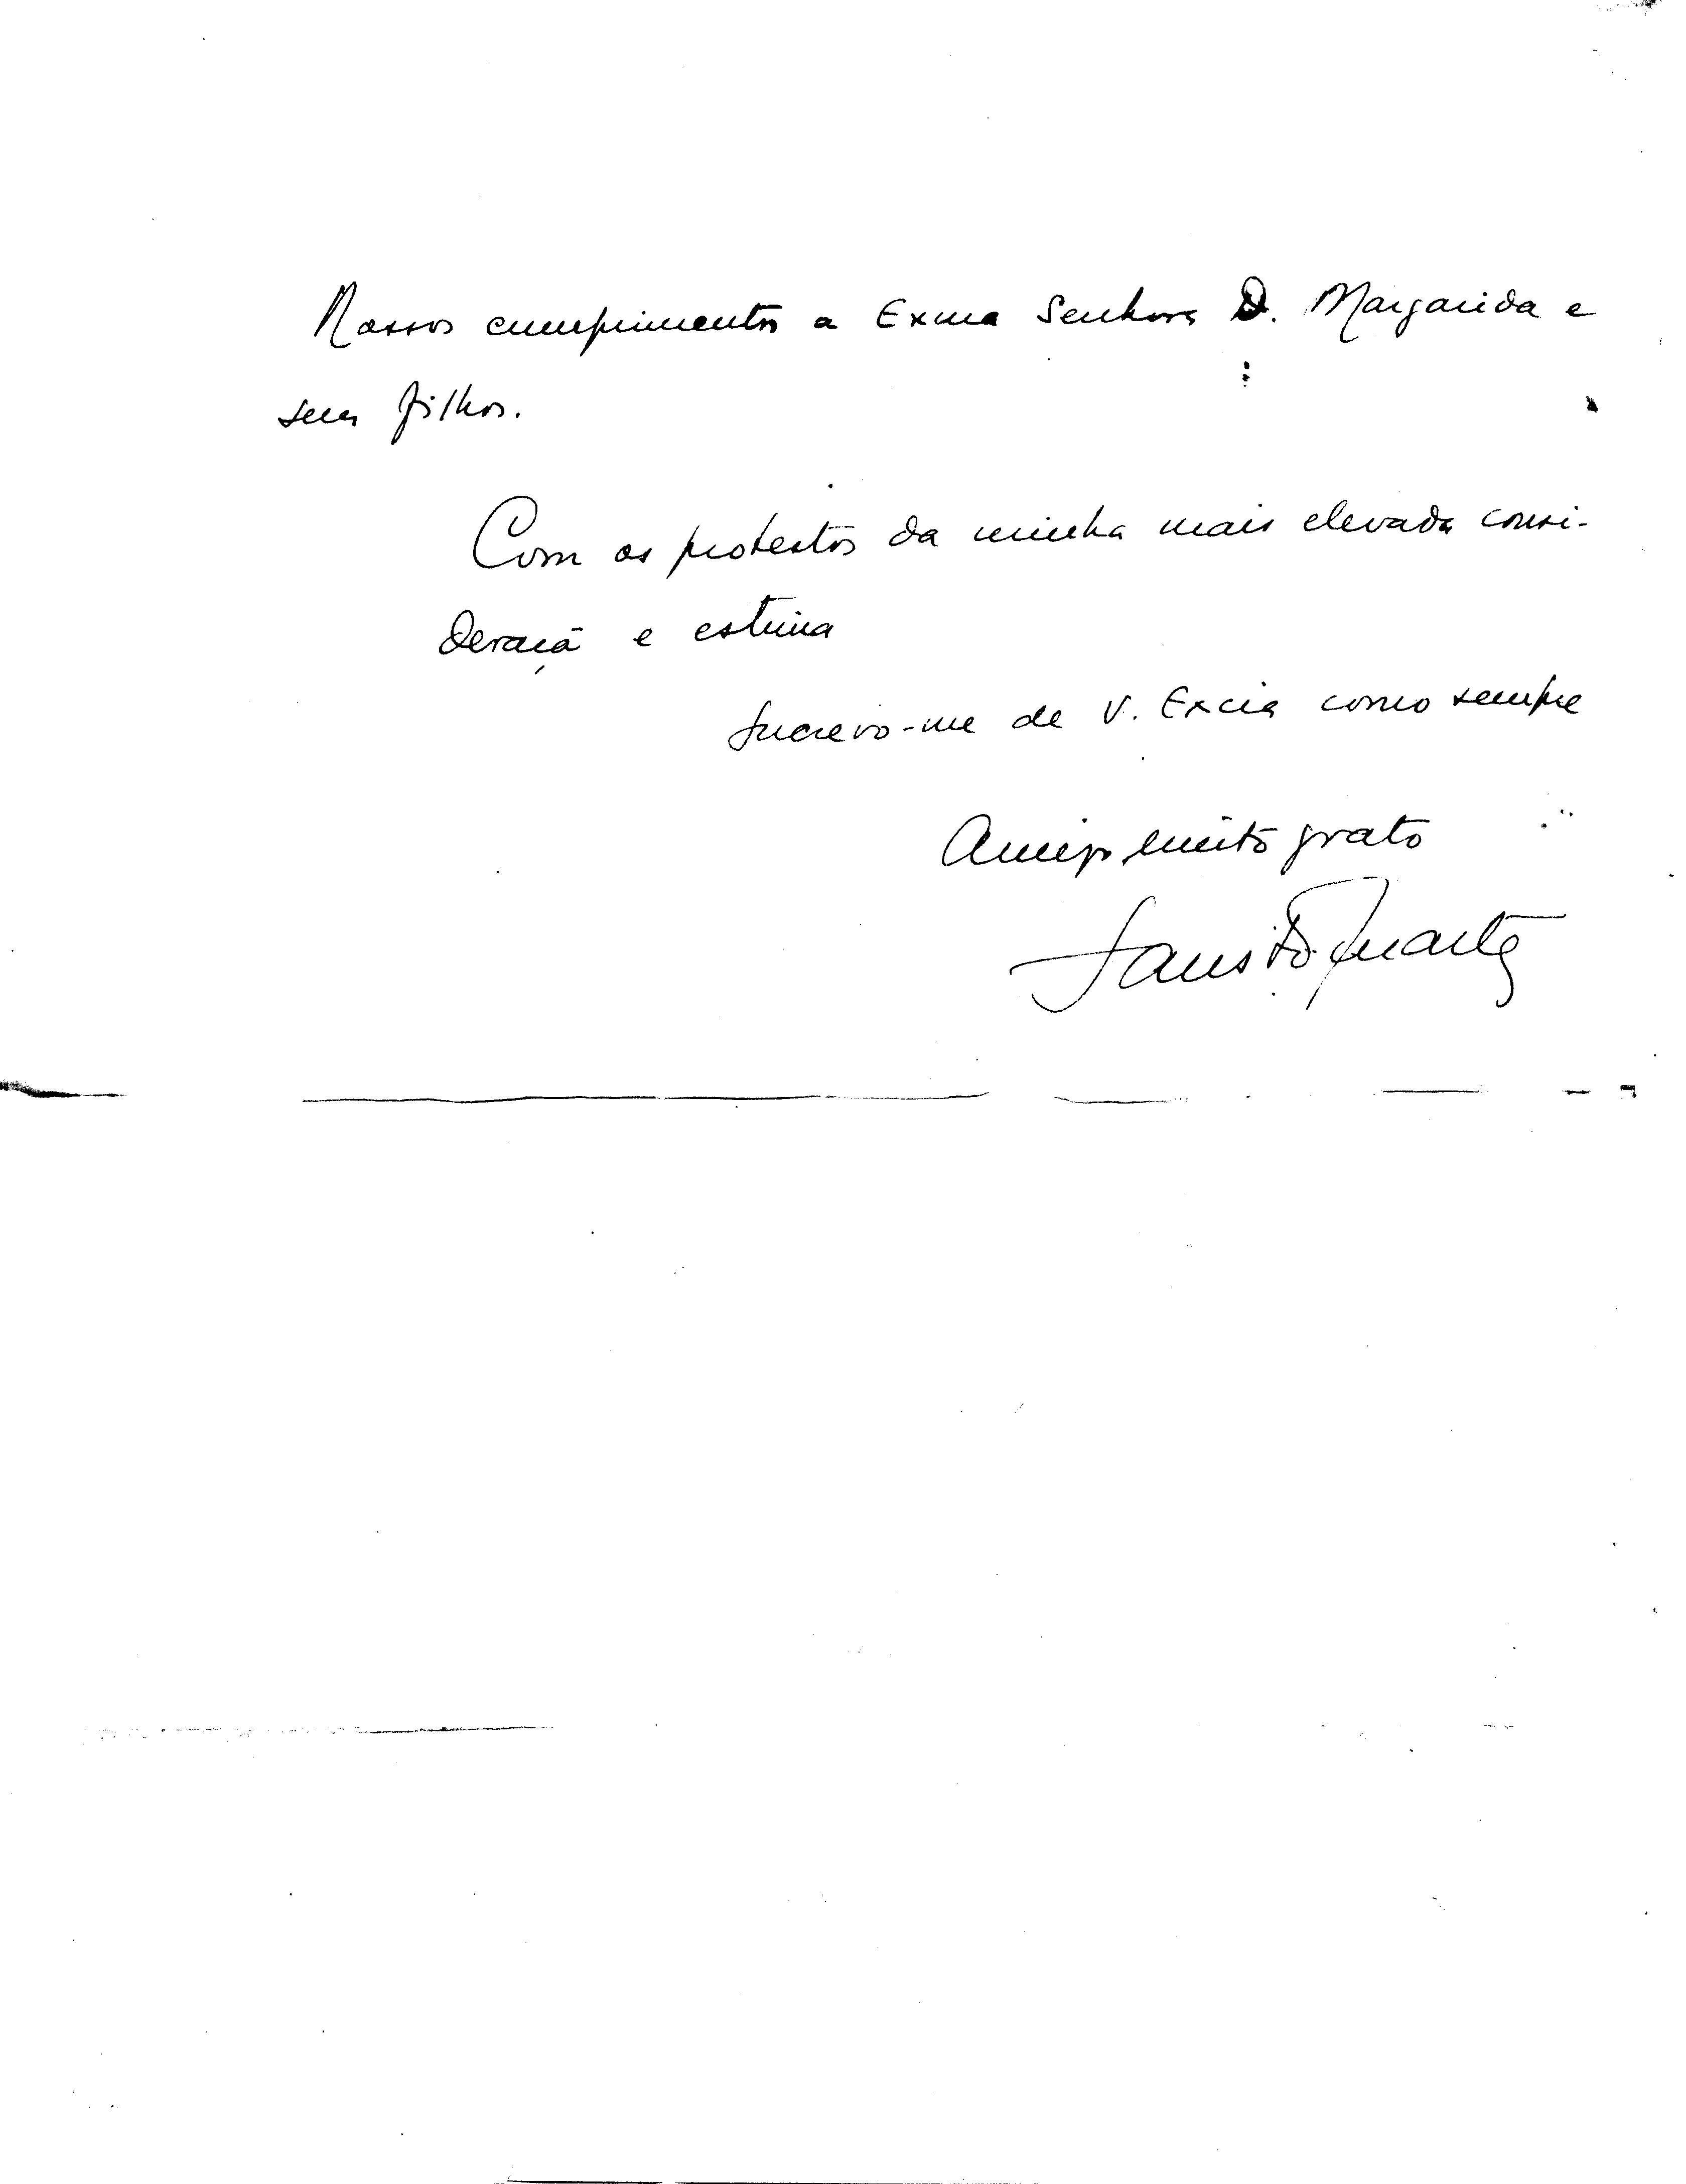 Nossos cumprimentos a Exma Senhora D. Margarida e
seus filhos.
Com os protestos da minha mais elevada consi-
deração e estima
Sucrevo-me de V. Excia como sempre
Amigo muito grato
Fausto Duarte